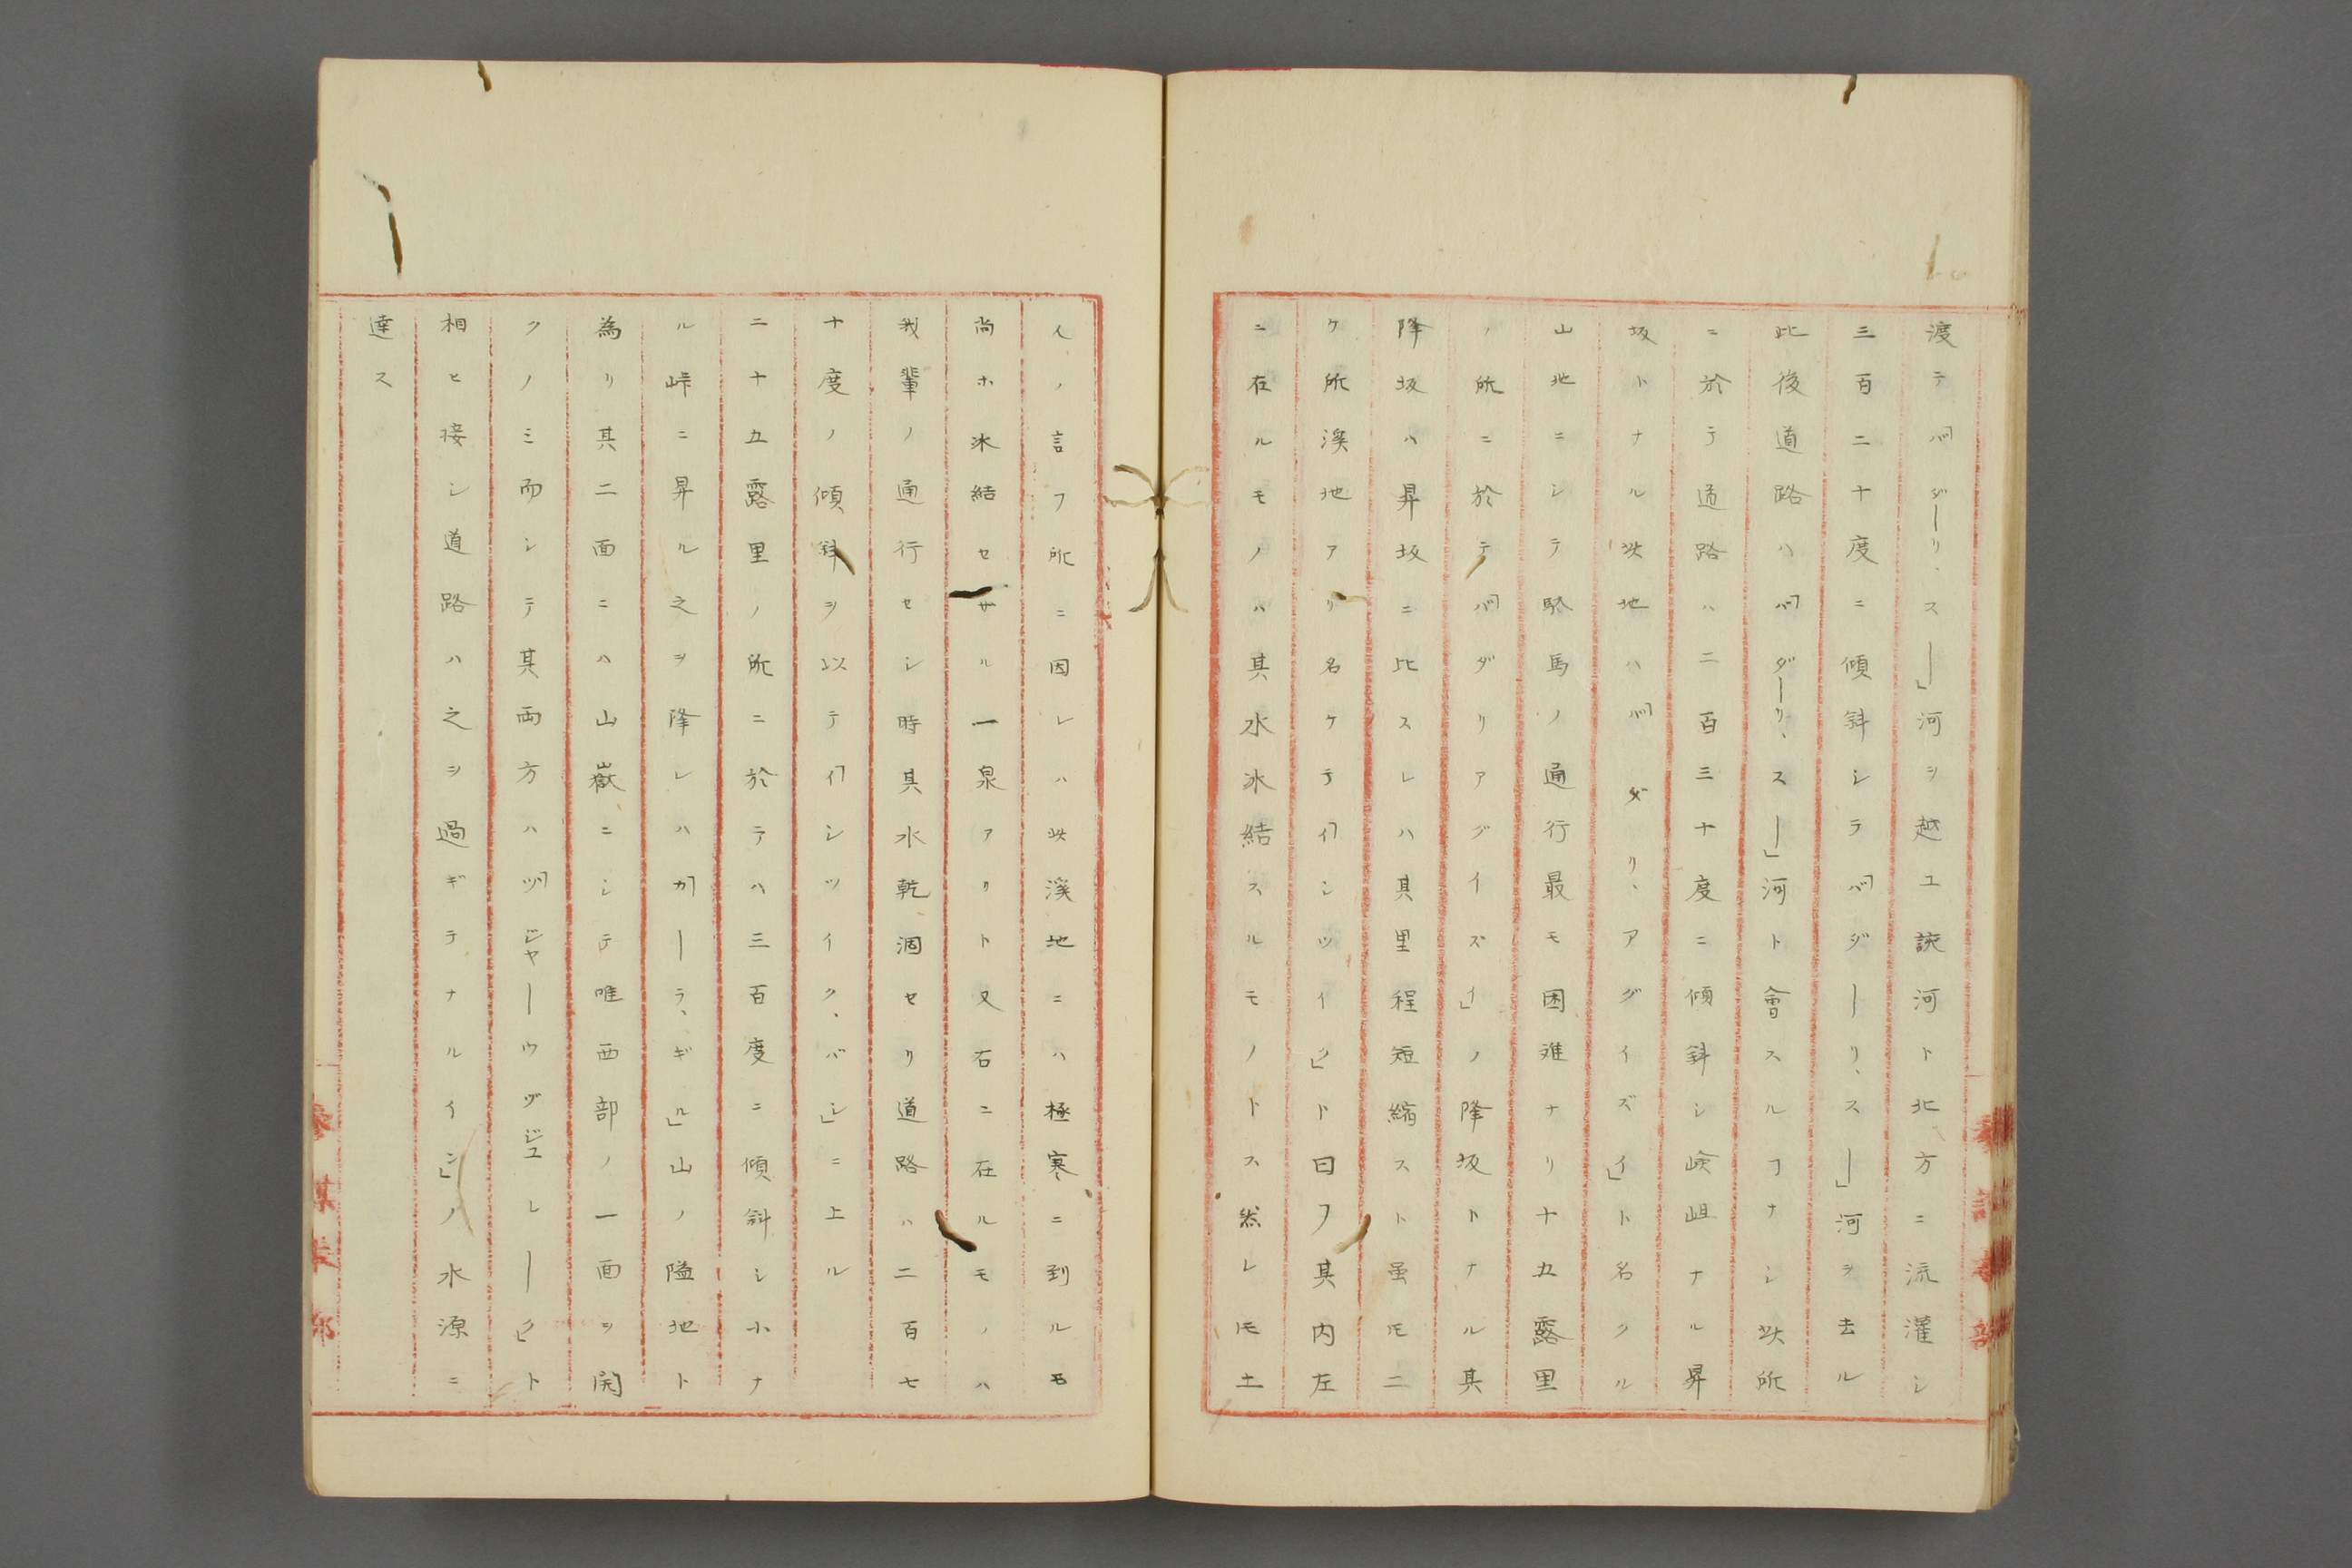 渡テ「バダーリ、スー」河ヲ越ユ該河ト北方ニ流灌シ
三百二十度ニ傾斜シテ「バダーリ、スー」河ヲ去ル
此後道路ハ「バダーリ、スー」河ト會スルヿナシ此所
ニ於テ道路ハ二百三十度ニ傾斜シ峻岨ナル昇
坂トナル此地ハ「バダリ、アグイズイ」ト名クル
山地ニシテ駄馬ノ通行最モ困难ナリ十五露里
ノ所ニ於テ「バダリアグイズイ」ノ降坂トナル其
降坂ハ昇坂ニ比スレハ其里程短縮スト虽モ二
ケ所溪地アリ名ケテ「インツイク」ト曰フ其内左
ニ在ルモノハ其水氷結スルモノトス然レ𪜈土
人ノ言フ所ニ因レハ此溪地ニハ極寒ニ到ルモ
尚ホ氷結セサル一泉アリト又右ニ在ルモノハ
我輩ノ通行セシ時其水乾涸セリ道路ハ二百七
十度ノ傾斜ヲ以テ「インツイク、バシ」ニ上ル
二十五露里ノ所ニ於テハ三百度ニ傾斜シ小ナ
ル峠ニ昇ル之ヲ降レハ「カーラ、ギル」山ノ隘地ト
為リ其二面ニハ山嶽ニシテ唯西部ノ一面ヲ開
クノミ而シテ其両方ハ「ツジャーウヅジユレーク」ト
相ヒ接シ道路ハ之ヲ過ギテナルイン」ノ水源ニ
達ス
參謀本部